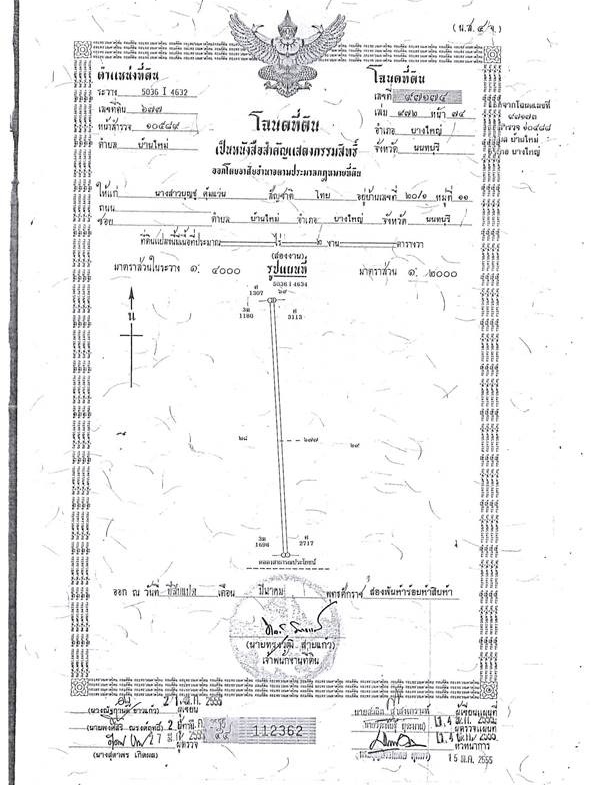 (น.ส. ๔ จ.)
ตำแหน่งที่ดิน
ระวาง 5036 I 4632
เลขที่ดิน ๖๗๗
หน้าสำรวจ ๑๐๕๘๙
ตำบล บ้านใหม่
โฉนดที่ดิน
เลขที่ ๔๗๑๗๔
เล่ม ๔๗๒ หน้า ๗๔
อำเภอ บางใหญ่
จังหวัด นนทบุรี
โฉนดที่ดิน
เป็นหนังสือสำคัญแสดงกรรมสิทธิ์
ออกโดยอาศัยอำนาจตามประมวลกฎหมายที่ดิน
ให้แก่ นางสาวบุญชู คุ้มแว่น สัญชาติ ไทย อยู่บ้านเลขที่ ๒๐/๑ หมู่ที่ ๑๑
ถนน
ซอย ตำบล บ้านใหม่ อำเภอ บางใหญ่ จังหวัด นนทบุรี
ที่ดินแปลงนี้มีเนื้อที่ประมาณ ไร่ ๒ งาน ตารางวา
(สองงาน)
มาตราส่วนในระวาง ๑: ๔๐๐๐
รูปแผนที่
มาตราส่วน ๑: ๒๐๐๐
5036 I 4634
๖๙
ศ
1307
3ต
1180
ศ
3113
น
๒๘
๖๗๗
๒๙
3ต
1696
ศ
2717
คลองสาธารณประโยชน์
ออก ณ วันที่ ยี่สิบแปด เดือน มีนาคม พุทธศักราช สองพันห้าร้อยห้าสิบห้า
(นายทรงวุฒิ สายแก้ว)
เจ้าพนักงานที่ดิน
27 มี.ค. 2555
ผู้เขียน
ผู้ตรวจ
112362
ผู้เขียนแผนที่
ผู้ตรวจแผนที่
หัวหน้าการ
15 มี.ค. 2555